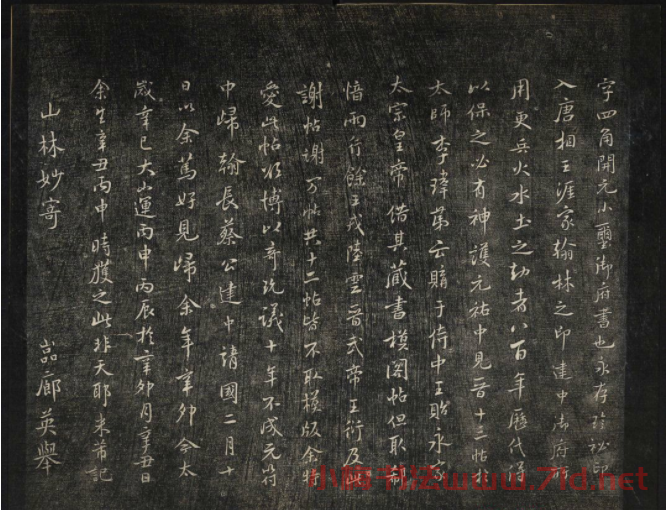 字四角開元小璽御府書也永存珍祕印
入唐相王涯家翰林之印建中御府
用更兵火水土之劫者八百年歷代得
以保之必有神護元祐中見晉十三帖於
太師李瑋第云購于侍中王貽永家
太宗皇帝借其藏書模閣帖但取郗
愔兩行餘王戎陸雲晉武帝王衍及此
謝帖謝万帖共十二帖皆不取模版余特
愛此帖欲博以奇玩議十年不成元符
中歸翰長蔡公建中靖國二月十
日以余篤好見歸余年辛卯今太
歲辛巳大小運丙申丙辰於辛卯月辛丑日
余生辛丑丙申時獲之此非天耶米芾記
山林妙寄
嵓廊英舉
小楠书法www.71d.net